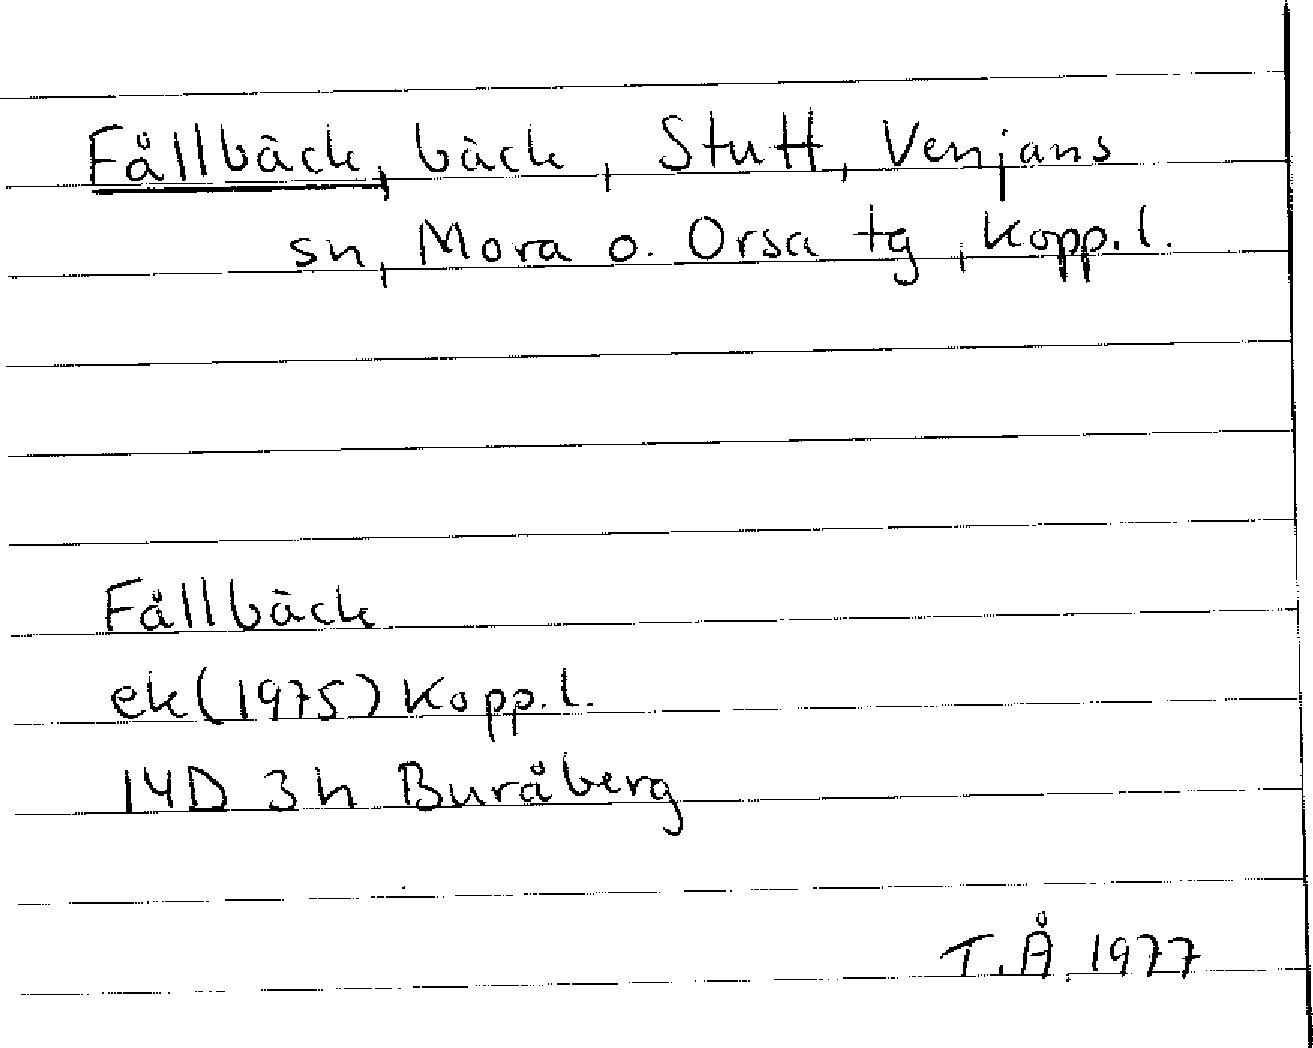 Fållbäck, bäck, Stutt, Venjans
sn, Mora o. Orsa tg, Kopp.l.
Fållbäck
ek(1975) Kopp.l.
14D 3h Buråberg
T.Å. 1977